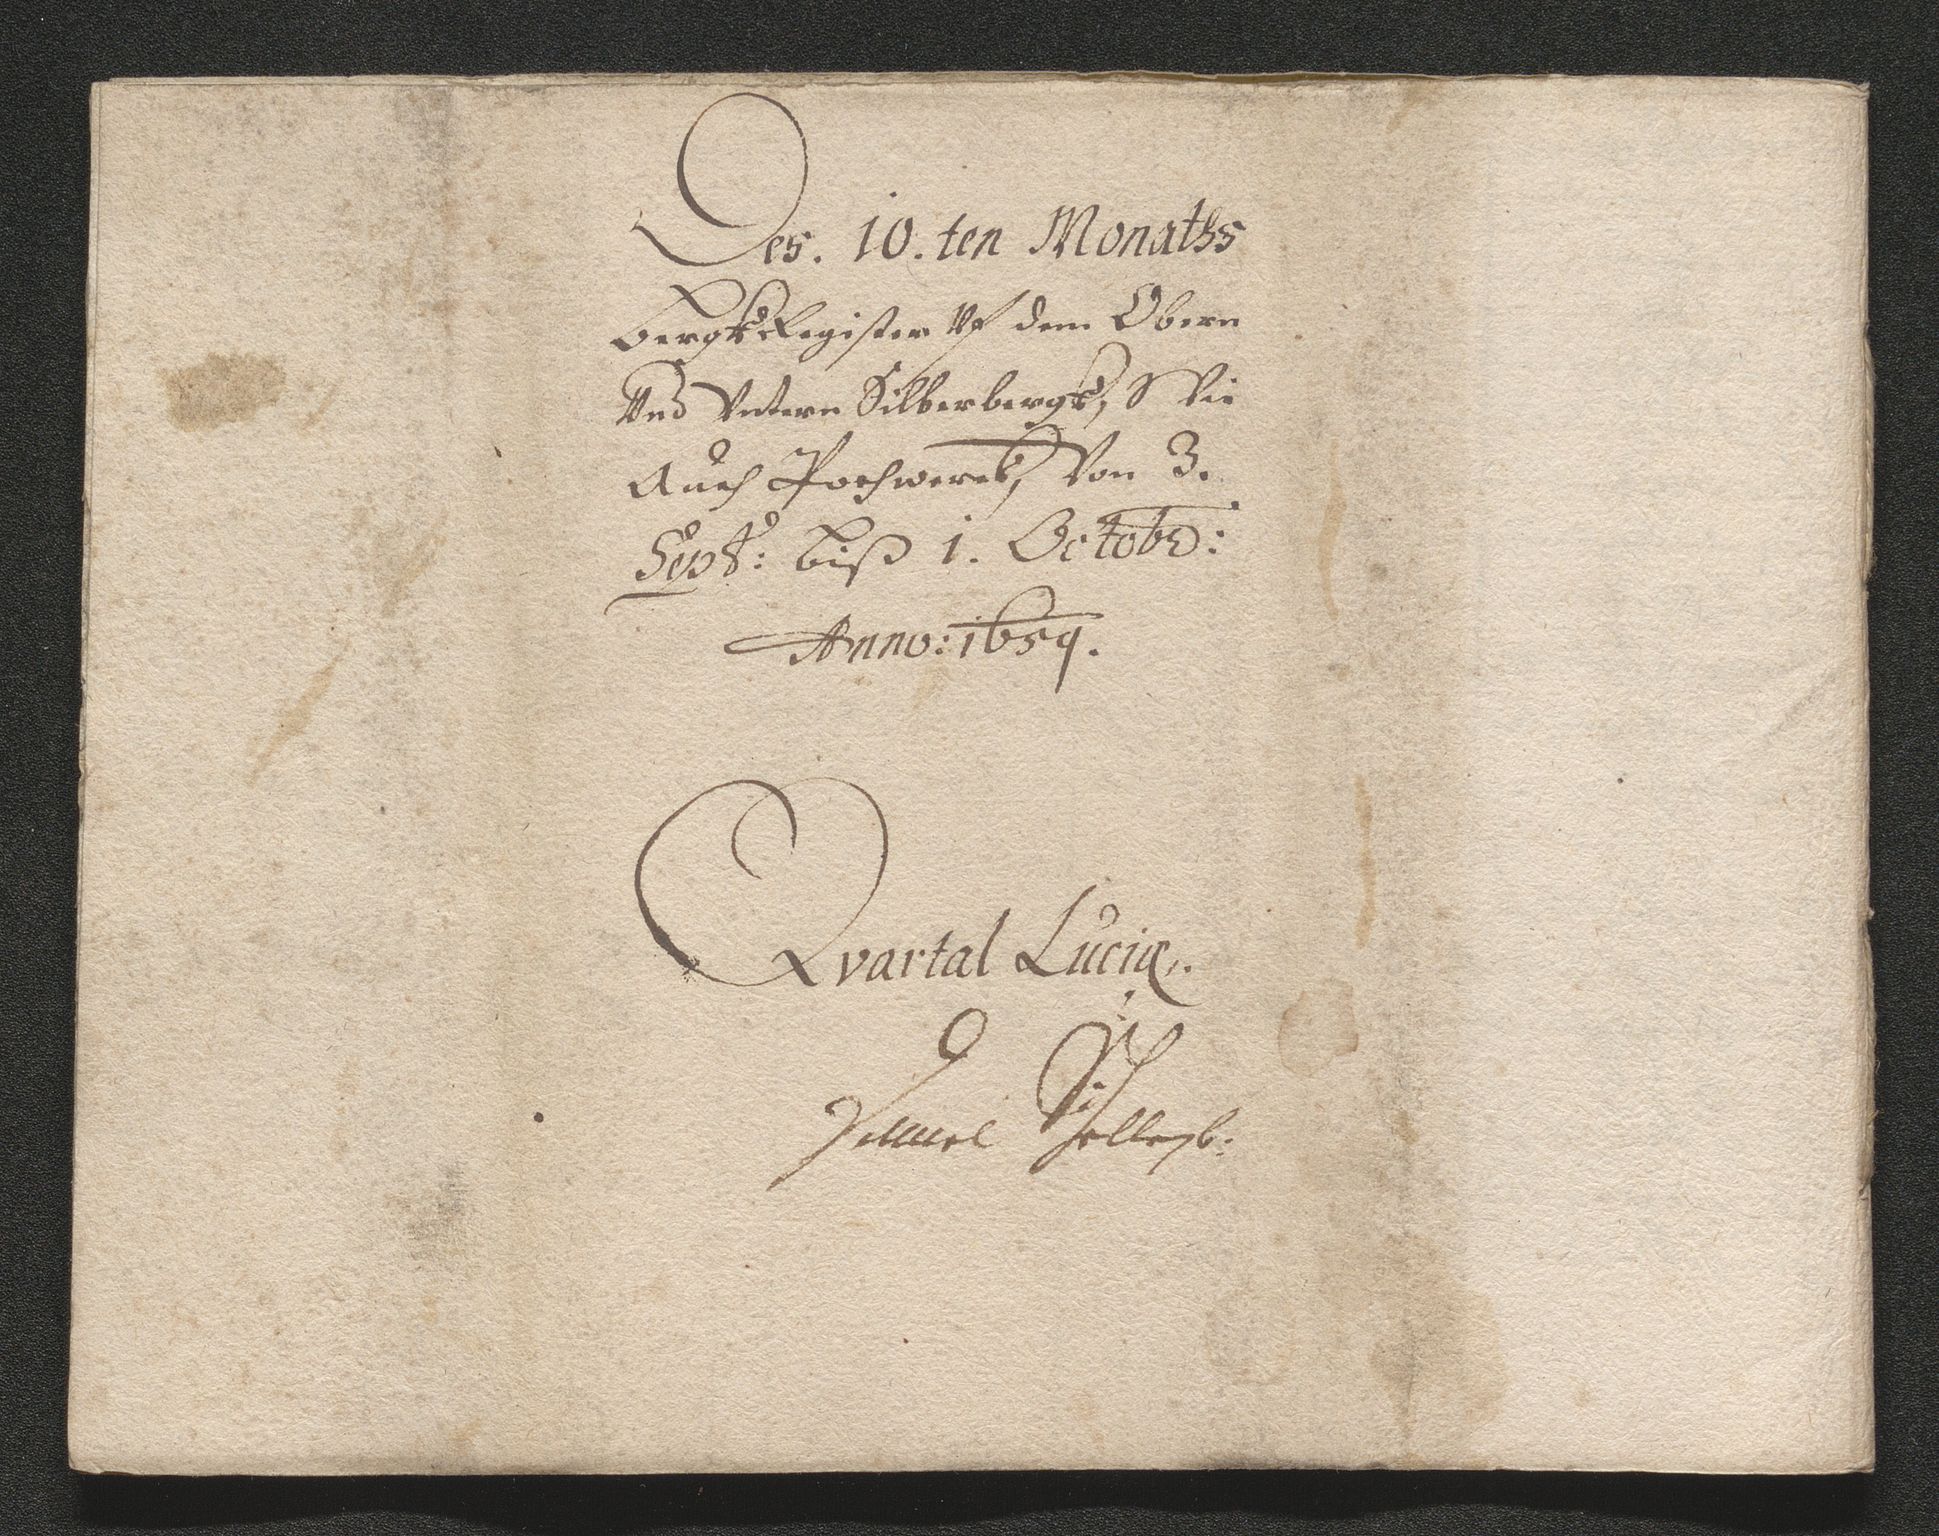 Des. 10. ten Monaths
BergkRegister Vf dem Obern
Vnd Vntern Silberbergk, Wie
Auch Pochwerck, Von 3.
Sept: biß 1. Octobr:
Anno: 1659.
Qvartal Luciæ.
Samuel